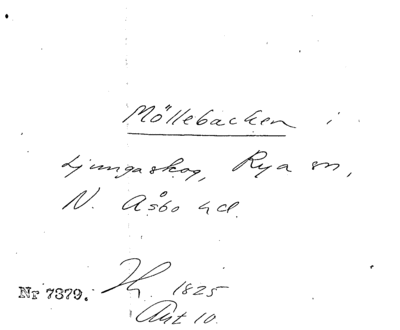 Möllebacken i
Ljungaskog, Rya sn,
N. Åsbo hd.
Nr 7379. 1825
Akt 10.